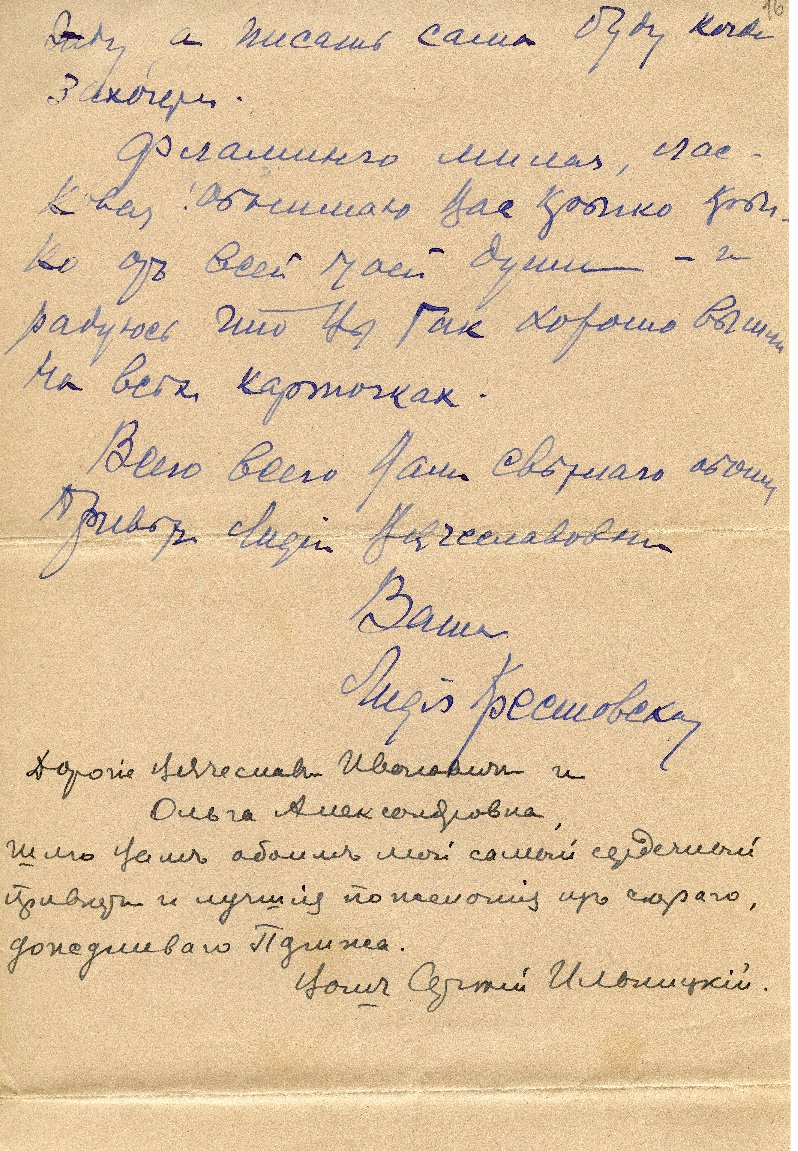 16
буду, а писать сама буду когда
захочеть.
Фламинго милая, лас-
ковая! Обнимаю Вас крѣпко крѣп-
ко отъ всей моей души — и
радуюсь что Вы так хорошо вышли
на всѣхъ карточках.
Всего всего Вамъ свѣтлаго обоимъ
Привѣтъ Лидіи Вячеславовнѣ
Ваша
Лидія Крестовская
Дорогіе Вячеславъ Ивановичъ и
Ольга Александровна,
шлю Вамъ обоимъ мой самый сердечный
привѣтъ и лучшія пожеланія изъ сѣраго,
дождливаго Парижа.
Вашъ Сергѣй Ильницкій.